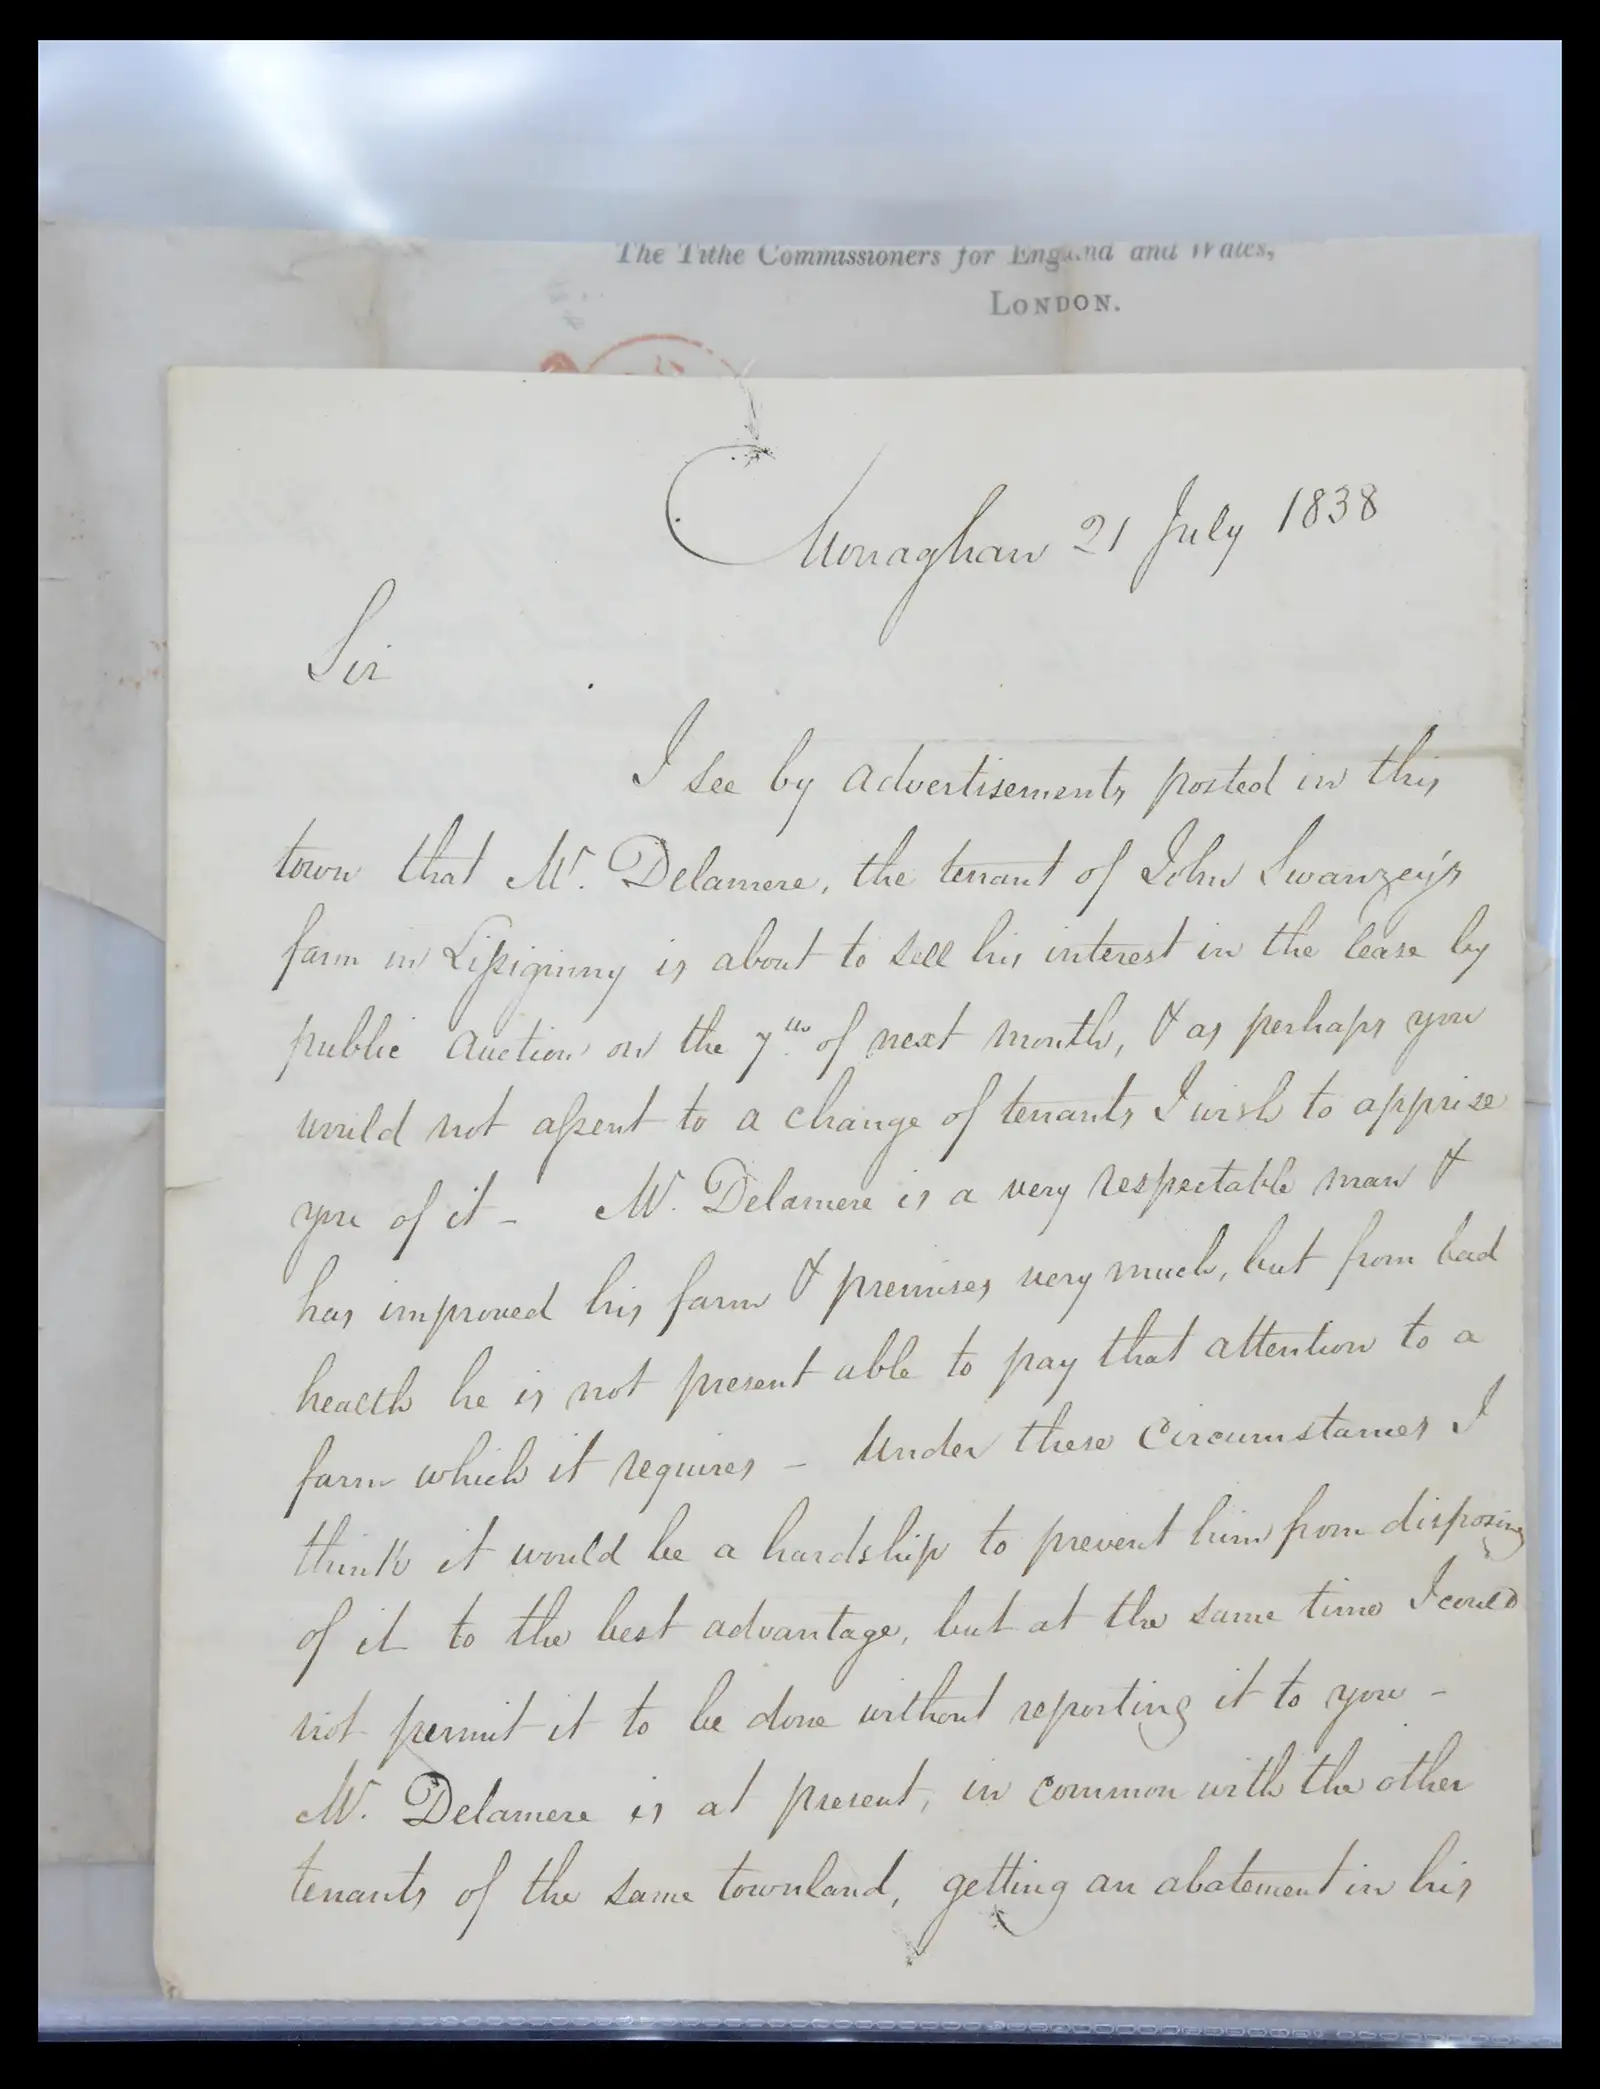 The Tithe Commissioners for England and Wales,
LONDON.
Monaghan 21 July 1838
Sir
I see by advertisements posted in this
town that Mr. Delamere, the tenant of John Swanzey's
farm in Lissiginny is about to sell his interest in the lease by
public Auction on the 7th of next month, & as perhaps you
would not assent to a change of tenants I wish to apprise
you of it – Mr. Delamere is a very respectable man &
has improved his farm & premises very much, but from bad
health he is not present able to pay that attention to a
farm which it requires – Under these Circumstances I
think it would be a hardship to prevent him from disposing
of it to the best advantage, but at the same time I could
not permit it to be done without reporting it to you –
Mr. Delamere is at present, in common with the other
tenants of the same townland, getting an abatement in his